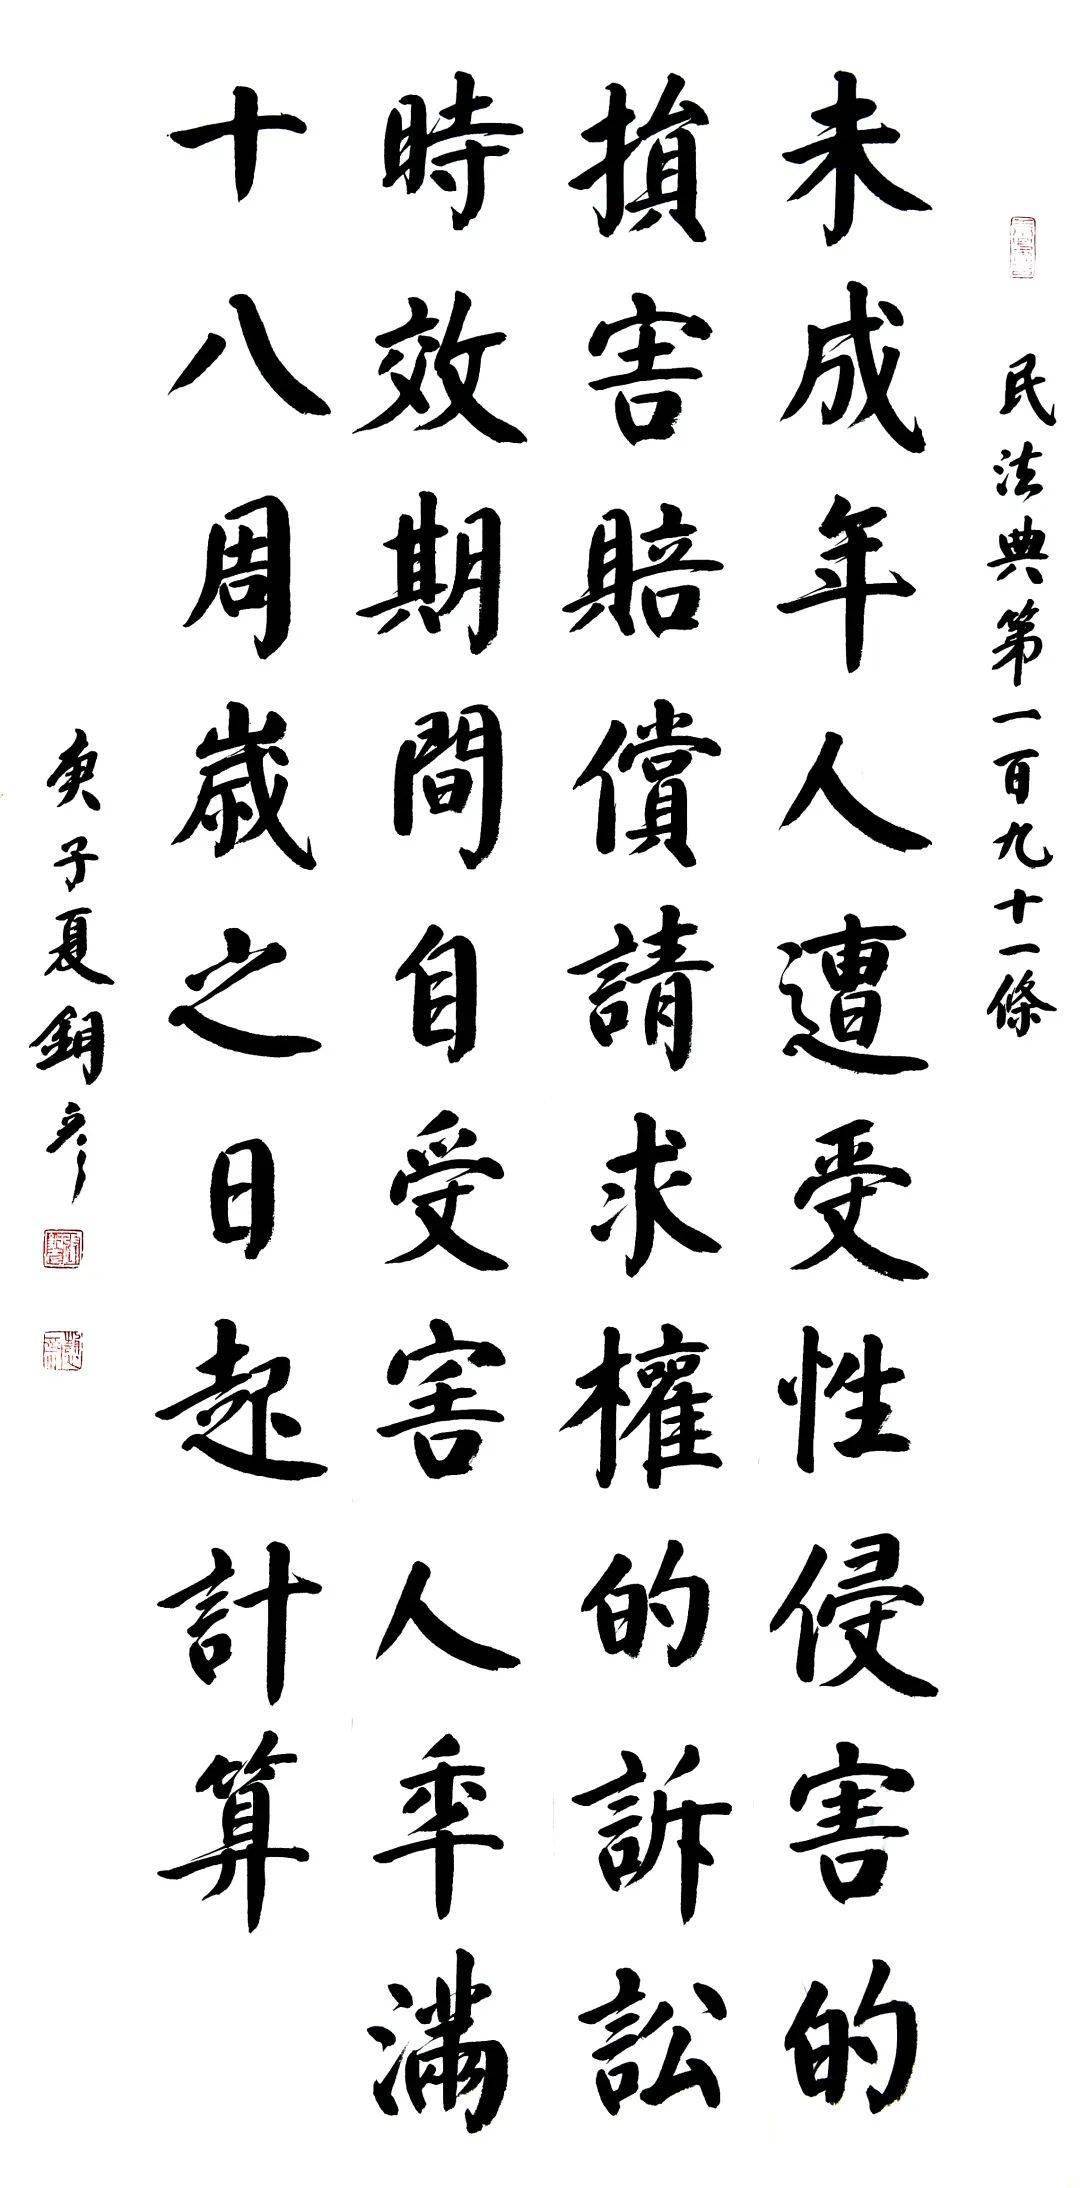 民法典第一百九十一條
未成年人遭受性侵害的
損害賠償請求權的訴訟
時效期間自受害人年滿
十八周歲之日起計算
庚子夏鋗彦